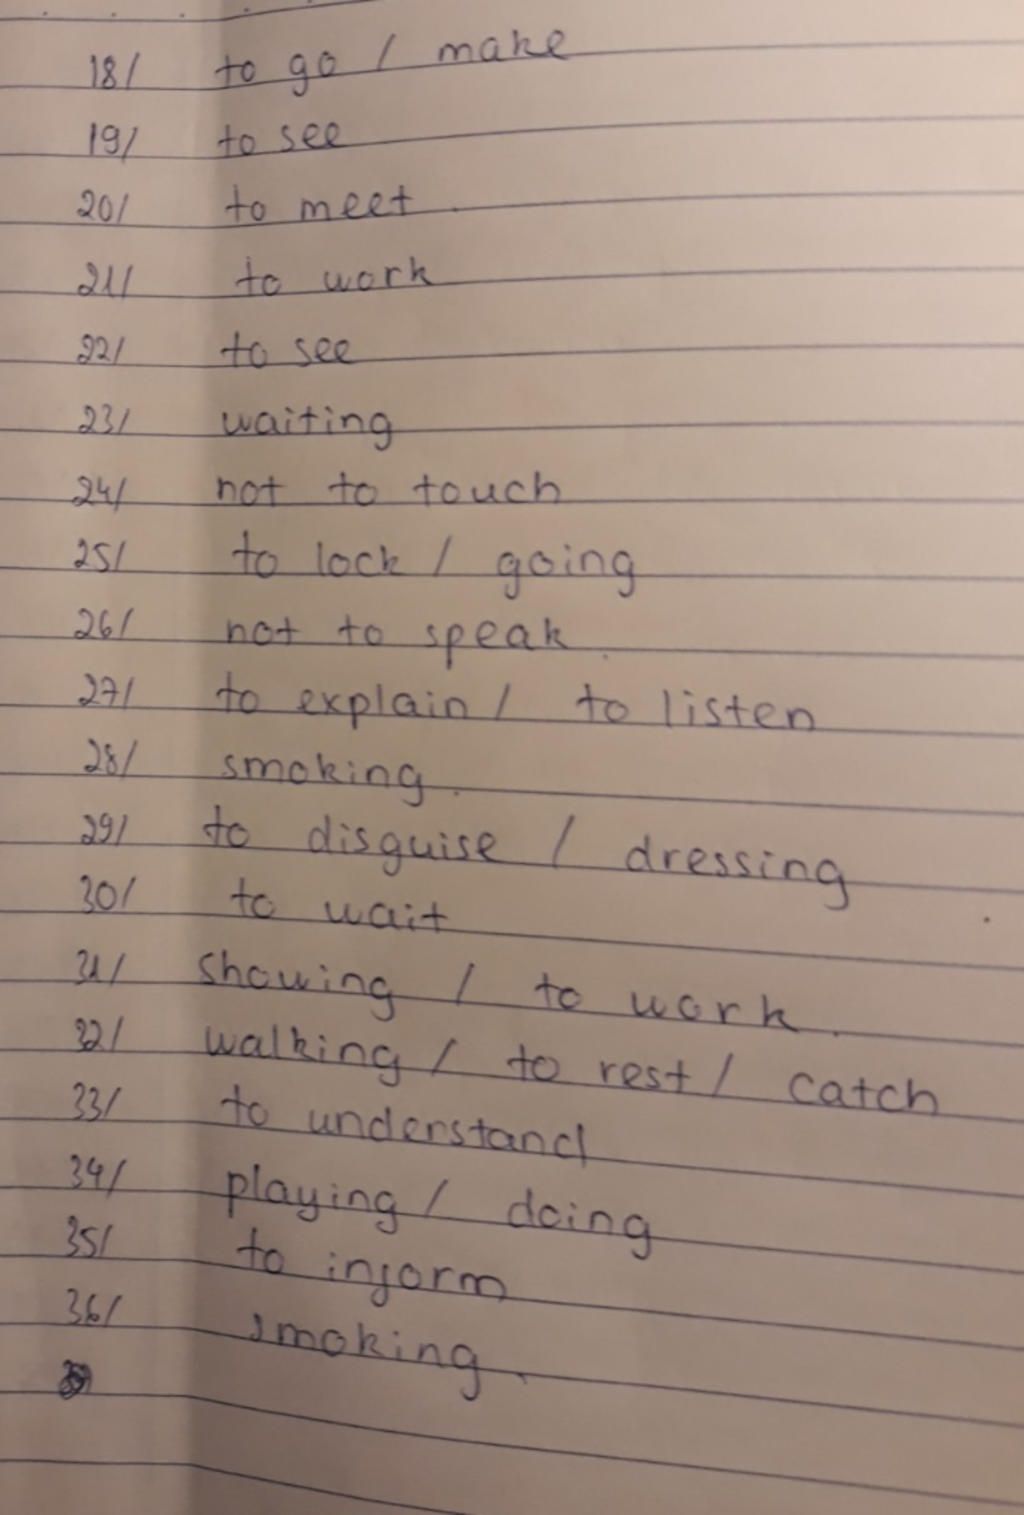 18/ to go / make
19/ to see
20/ to meet.
21/ to work
22/ to see
23/ waiting
24/ not to touch
25/ to lock / going
26/ not to speak.
27/ to explain / to listen
28/ smoking.
29/ to disguise / dressing
30/ to wait
31/ showing / to work.
32/ walking / to rest / catch
33/ to understand
34/ playing / doing
35/ to inform
36/ smoking.